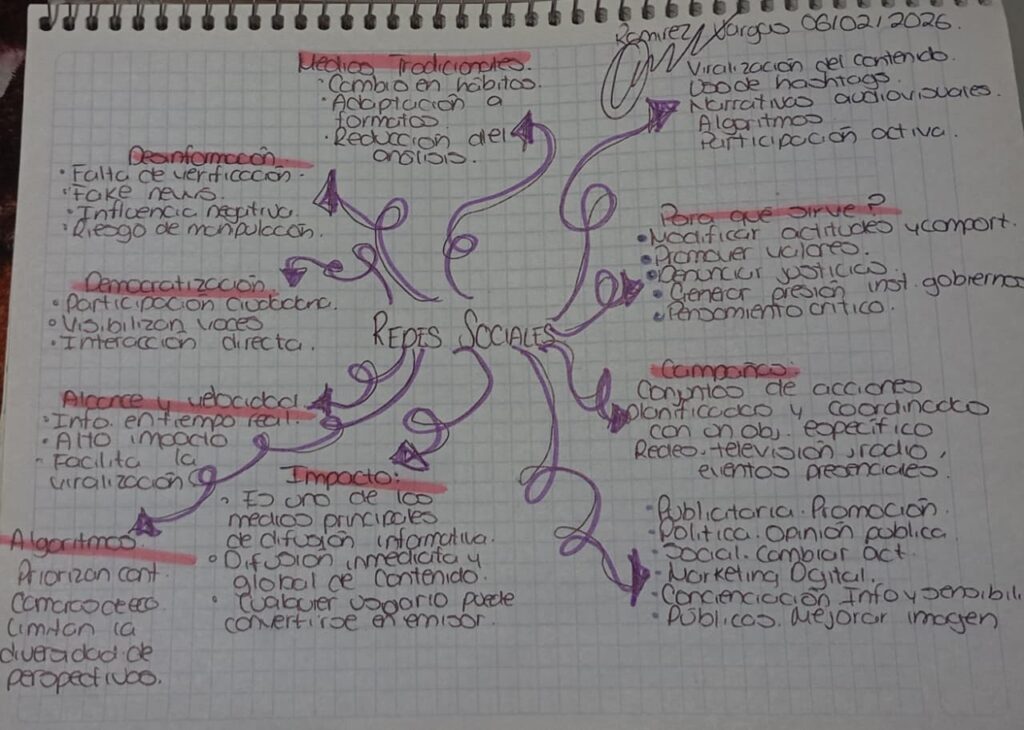 Ramirez Vargas 06/02/2026.
Medios Tradicionales.
· Cambio en hábitos.
· Adaptación a
formatos.
· Reducción del
análisis.
Viralización del contenido.
Uso de hashtags.
Narrativas audiovisuales.
Algoritmos
Participación activa.
Desinformación
· Falta de verificación.
· Fake news.
· Influencia negativa.
· Riesgo de manipulación.
Para qué sirve?
• Modificar actitudes y comport.
• Promover valores.
• Denunciar justicias.
• Generar presión inst. gobiernos
• Pensamiento crítico.
Democratización
• Participación ciudadana.
• Visibilizan voces
• Interacción directa.
REDES SOCIALES
Campañas:
Conjuntos de acciones
planificadas y coordinadas
con un obj. específico
Redes, televisión, radio,
eventos presenciales.
Alcance y velocidad
• Info. en tiempo real.
• Alto impacto
- Facilita la
viralización
Impacto:
• Es uno de los
medios principales
de difusión informativa.
• Difusión inmediata y
global de contenido.
• Cualquier usuario puede
convertirse en emisor.
Algoritmos.
Priorizan cont.
Camaras de eco
Limitan la
diversidad de
perspectivas.
• Publicitaria. Promoción.
• Política. Opinión pública
• Social. Cambiar act.
• Marketing Digital.
• Concienciación Info y sensibili.
• Públicas. Mejorar imagen